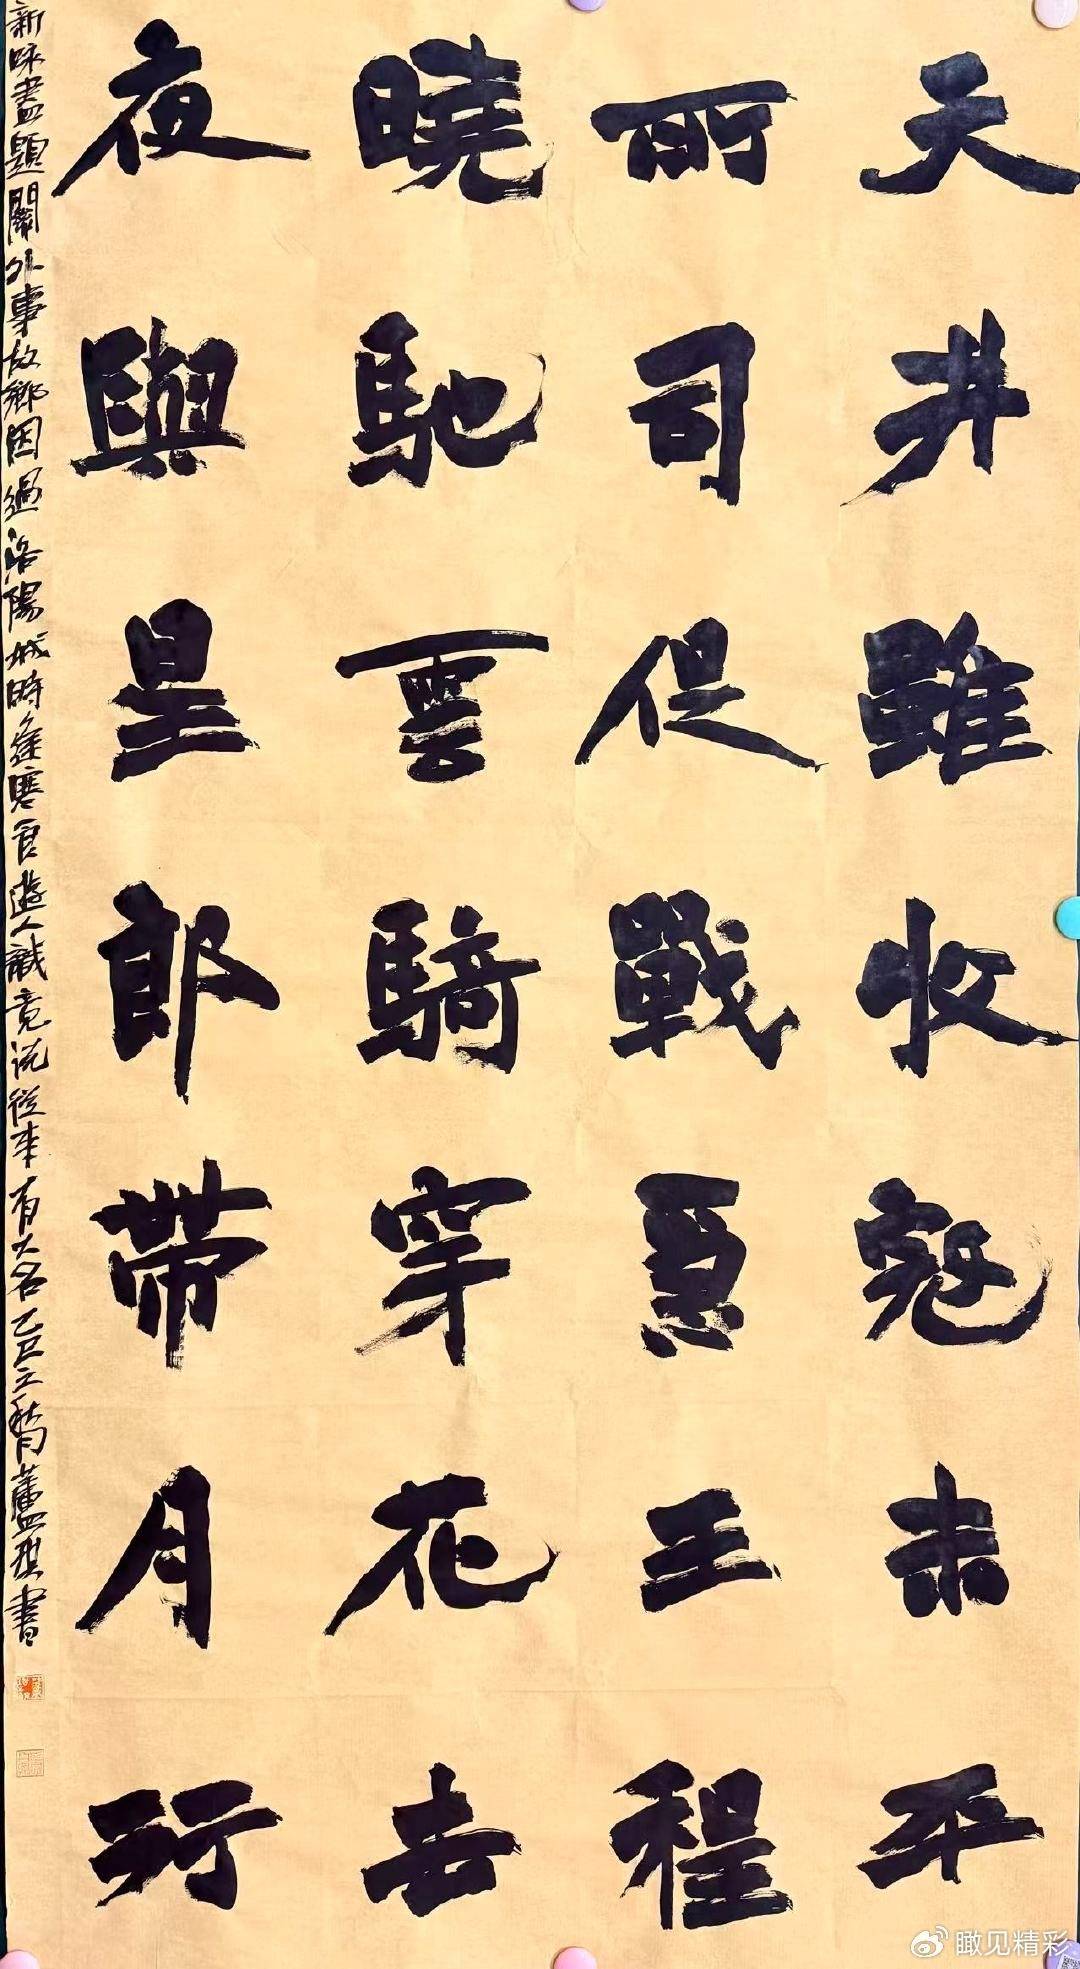 天井雖收寇未平
所司促戰急王程
曉馳雲騎穿花去
夜與星郎帶月行
新咏盡題關外事故鄉因過洛陽城時逢寒食遊人識竟說從來有大名乙巳立秋蘆琪書
瞰见精彩